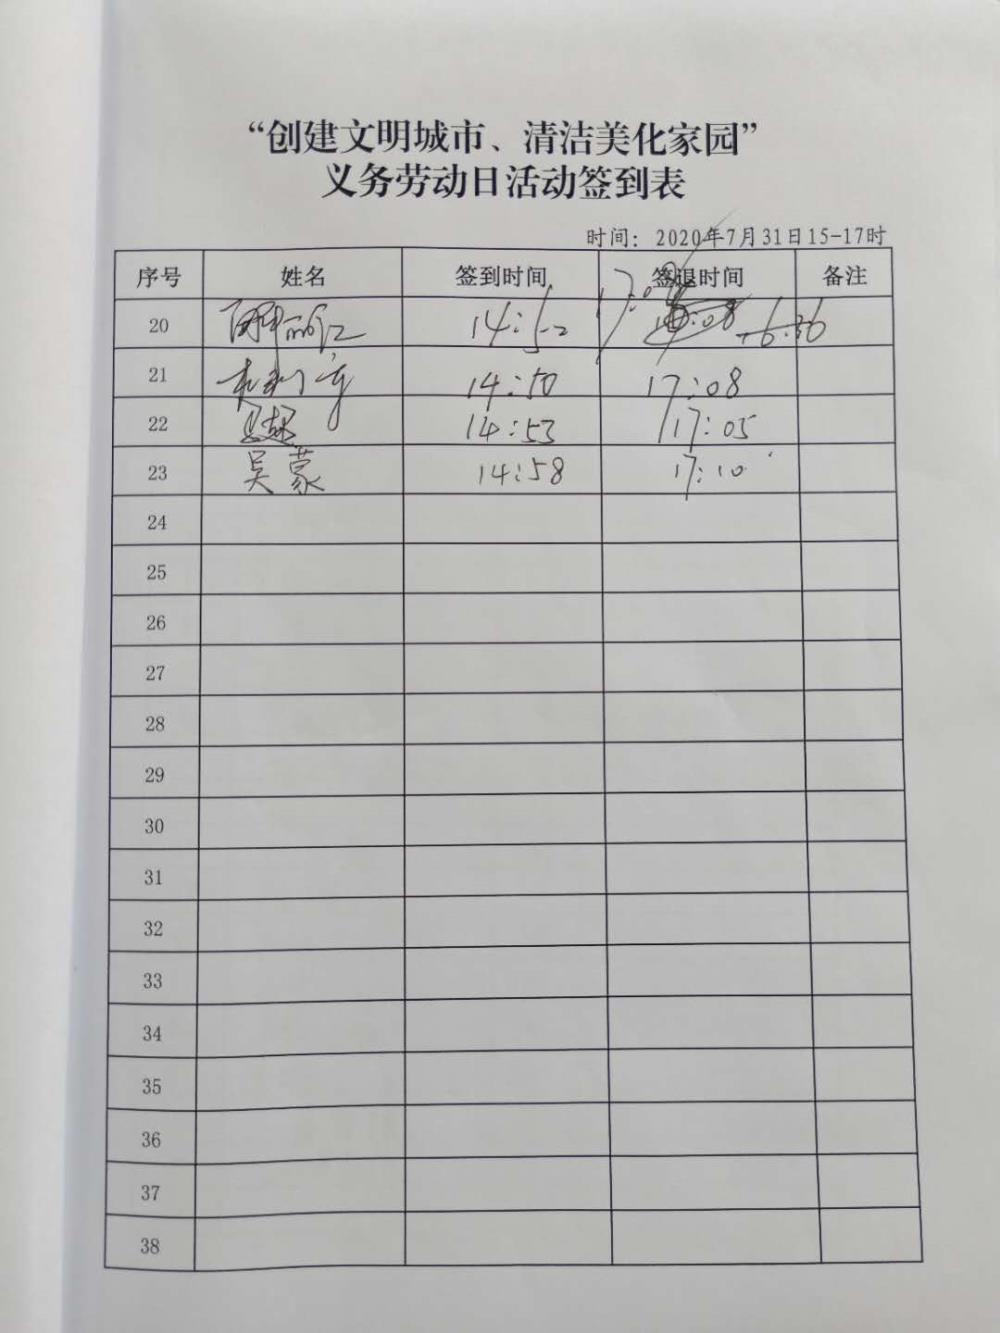 “创建文明城市、清洁美化家园”
义务劳动日活动签到表
时间：2020年7月31日15-17时
序号 姓名 签到时间 签退时间 备注
20 14:52
21 14:50 17:08
22 14:53 17:05
23 吴蒙 14:58 17:10
24
25
26
27
28
29
30
31
32
33
34
35
36
37
38